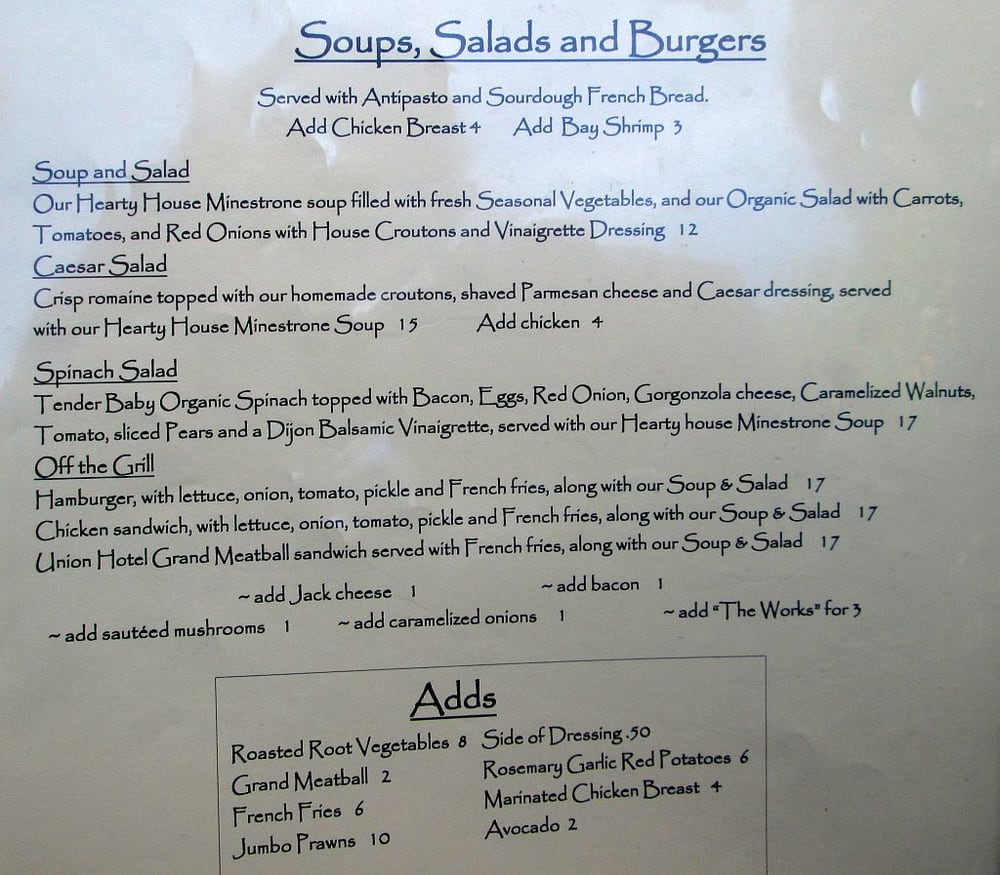 Soups, Salads and Burgers
Served with Antipasto and Sourdough French Bread.
Add Chicken Breast 4 Add Bay Shrimp 3
Soup and Salad
Our Hearty House Minestrone soup filled with fresh Seasonal Vegetables, and our Organic Salad with Carrots,
Tomatoes, and Red Onions with House Croutons and Vinaigrette Dressing 12
Caesar Salad
Crisp romaine topped with our homemade croutons, shaved Parmesan cheese and Caesar dressing, served
with our Hearty House Minestrone Soup 15 Add chicken 4
Spinach Salad
Tender Baby Organic Spinach topped with Bacon, Eggs, Red Onion, Gorgonzola cheese, Caramelized Walnuts,
Tomato, sliced Pears and a Dijon Balsamic Vinaigrette, served with our Hearty house Minestrone Soup 17
Off the Grill
Hamburger, with lettuce, onion, tomato, pickle and French fries, along with our Soup & Salad 17
Chicken sandwich, with lettuce, onion, tomato, pickle and French fries, along with our Soup & Salad 17
Union Hotel Grand Meatball sandwich served with French fries, along with our Soup & Salad 17
~ add Jack cheese 1 ~ add bacon 1
~ add sautéed mushrooms 1 ~ add caramelized onions 1 ~ add "The Works" for 3
Adds
Roasted Root Vegetables 8 Side of Dressing .50
Grand Meatball 2 Rosemary Garlic Red Potatoes 6
French Fries 6 Marinated Chicken Breast 4
Jumbo Prawns 10 Avocado 2